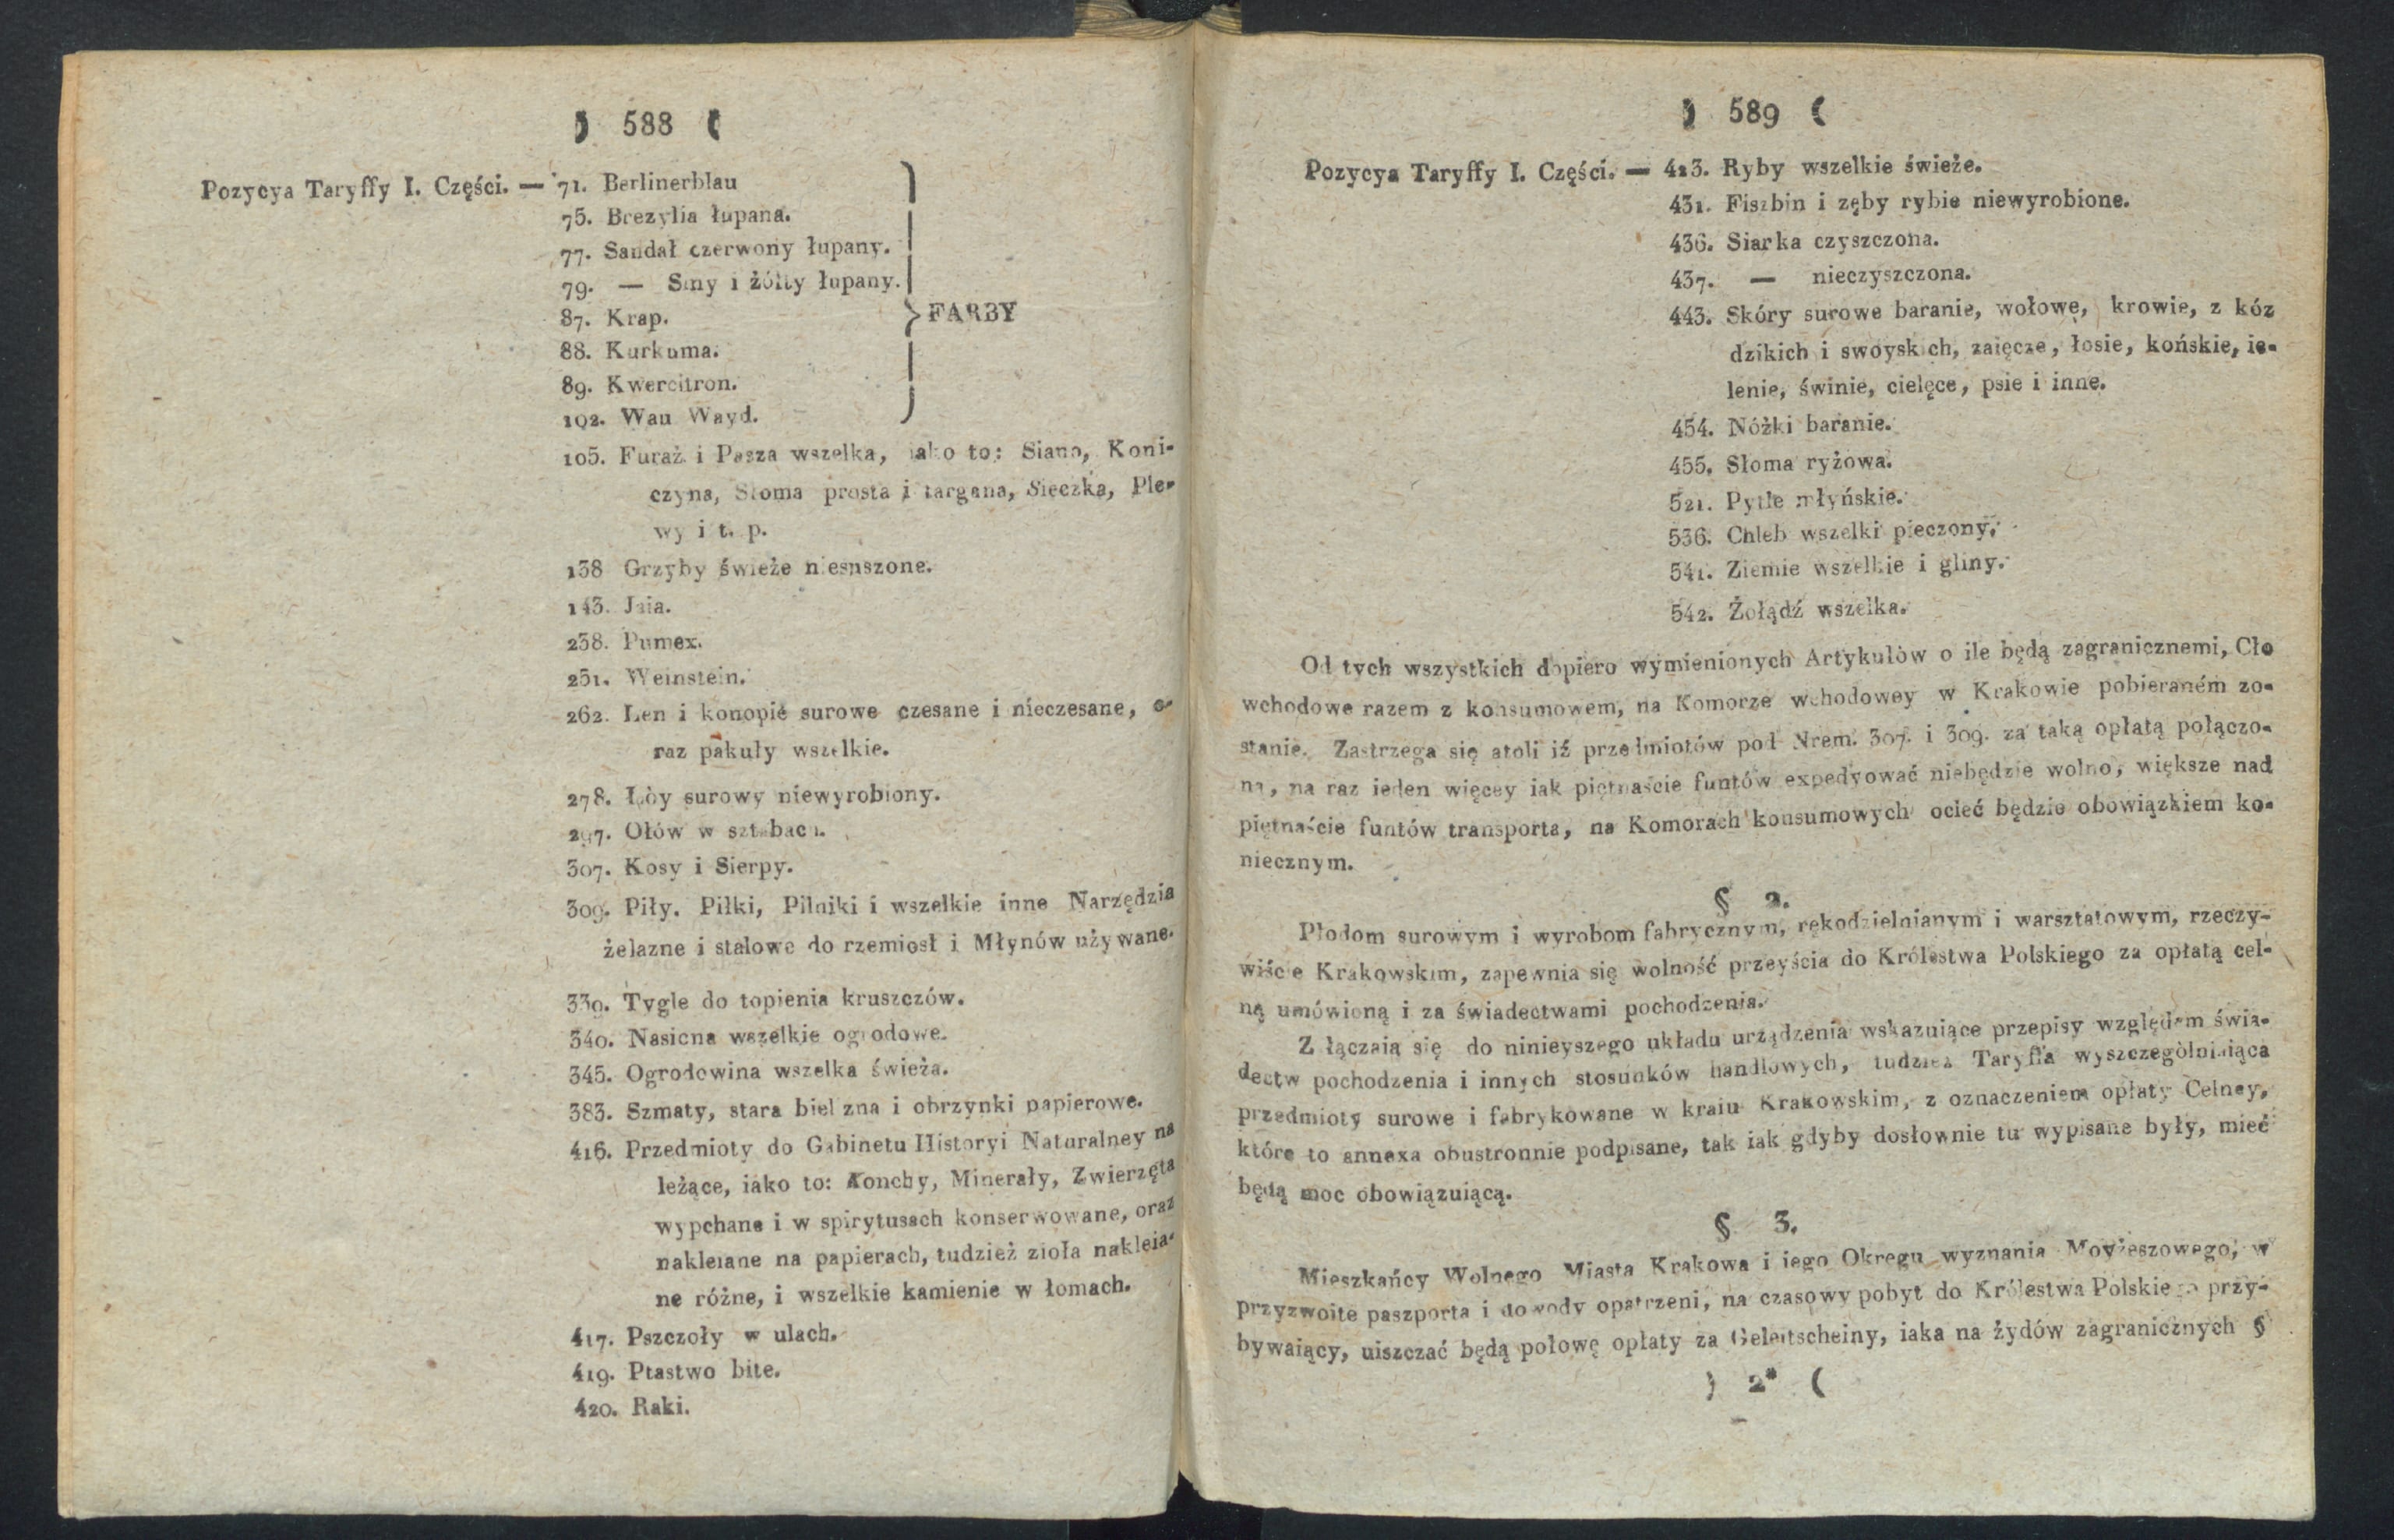 ) 588 (
Pozycya Taryffy I. Części. — 71. Berlinerblau
75. Brezylia łupana.
77. Sandał czerwony łupany.
79. — Siny i żółty łupany.
87. Krap.
FARBY
88. Kurkuma.
89. Kwercitron.
102. Wau Wayd.
105. Furaż i Pasza wszelka, iako to: Siano, Koni-
czyna, Słoma prosta i targana, Sieczka, Ple-
wy i t. p.
138 Grzyby świeże niesuszone.
143. Jaia.
238. Pumex.
251. Weinstein.
262. Len i konopie surowe czesane i nieczesane, o-
raz pakuły wszelkie.
278. Łóy surowy niewyrobiony.
297. Ołów w sztabach.
307. Kosy i Sierpy.
309. Piły. Piłki, Pilniki i wszelkie inne Narzędzia
żelazne i stalowe do rzemiosł i Młynów używane.
339. Tygle do topienia kruszczów.
340. Nasiona wszelkie ogrodowe.
345. Ogrodowina wszelka świeża.
383. Szmaty, stara bielizna i obrzynki papierowe.
416. Przedmioty do Gabinetu Historyi Naturalney na
leżące, iako to: Konchy, Minerały, Zwierzęta
wypchane i w spirytusach konserwowane, oraz
nakleiane na papierach, tudzież zioła nakleia-
ne różne, i wszelkie kamienie w łomach.
417. Pszczoły w ulach.
419. Ptastwo bite.
420. Raki.
) 589 (
Pozycya Taryffy I. Części. — 423. Ryby wszelkie świeże.
431. Fiszbin i zęby rybie niewyrobione.
436. Siarka czyszczona.
437. — nieczyszczona.
443. Skóry surowe baranie, wołowe, krowie, z kóz
dzikich i swoyskich, zaięcze, łosie, końskie, ie-
lenie, świnie, cielęce, psie i inne.
454. Nóżki baranie.
455. Słoma ryżowa.
521. Pytle młyńskie.
536. Chleb wszelki pieczony.
541. Ziemie wszelkie i gliny.
542. Żołądź wszelka.
Od tych wszystkich dopiero wymienionych Artykułów o ile będą zagranicznemi, Cło
wchodowe razem z konsumowem, na Komorze wchodowey w Krakowie pobieraném zo-
stanie. Zastrzega się atoli iż przedmiotów pod Nrem. 307. i 309. za taką opłatą połączo-
na, na raz ieden więcey iak piętnaście funtów expedyować niebędzie wolno, większe nad
piętnaście funtów transporta, na Komorach konsumowych ocleć będzie obowiązkiem ko-
niecznym.
§ 2.
Płodom surowym i wyrobom fabrycznym, rękodzielnianym i warsztatowym, rzeczy-
wiście Krakowskim, zapewnia się wolność przeyścia do Królestwa Polskiego za opłatą cel-
ną umówioną i za świadectwami pochodzenia.
Z łączaią się do ninieyszego układu urządzenia wskazuiące przepisy względem świa-
dectw pochodzenia i innych stosunków handlowych, tudzież Taryffa wyszczególniaiąca
przedmioty surowe i fabrykowane w kraiu Krakowskim, z oznaczeniem opłaty Celney,
które to annexa obustronnie podpisane, tak iak gdyby dosłownie tu wypisane były, mieć
będą moc obowiązuiącą.
§ 3.
Mieszkańcy Wolnego Miasta Krakowa i iego Okręgu wyznania Moyżeszowego, w
przyzwoite paszporta i dowody opatrzeni, na czasowy pobyt do Królestwa Polskiego przy-
bywaiący, uiszczać będą połowę opłaty za Geleitscheiny, iaka na żydów zagranicznych §
) 2* (